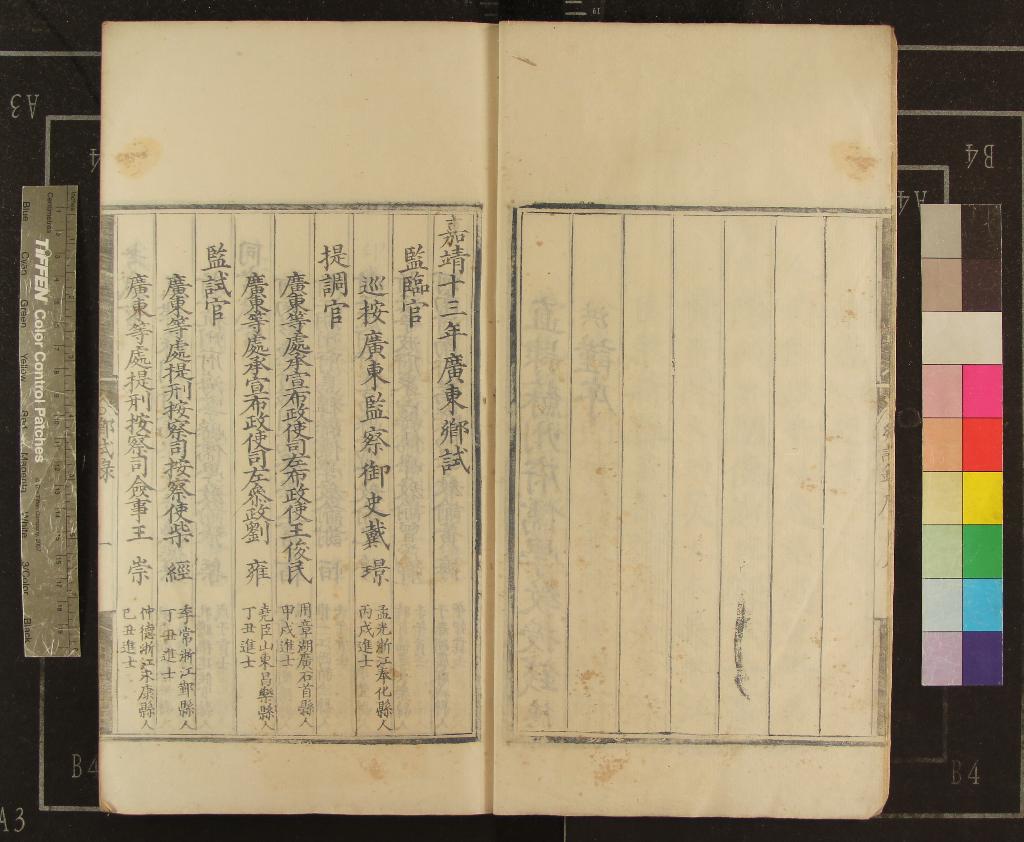 嘉靖十三年廣東鄉試
監臨官
巡按廣東監察御史戴璟
孟光浙江奉化縣人
丙戌進士
提調官
廣東等處承宣布政使司左布政使王俊民
用章湖廣石首縣人
甲戌進士
廣東等處承宣布政使司左叅政劉 雍
堯臣山東昌樂縣人
丁丑進士
監試官
廣東等處提刑按察司按察使柴 經
季常浙江鄞縣人
丁丑進士
廣東等處提刑按察司僉事王 崇
仲德浙江永康縣人
己丑進士
鄉試錄
一
TIFFEN Color Control Patches
Blue
Cyan
Green
Yellow
Red
Magenta
White
3/Color
Black
Centimetres
Inches
A3
B4
A4
B4
B4
B4
A3